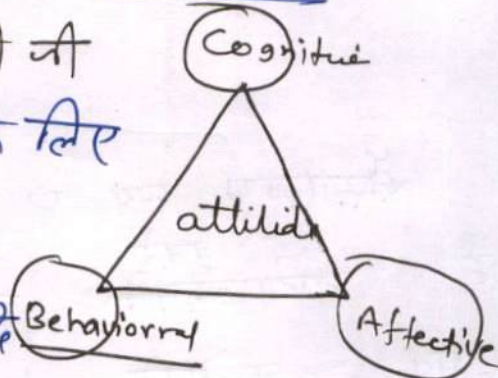 Cognitive
जी
लिए
attitide
Behaviorral
Affective